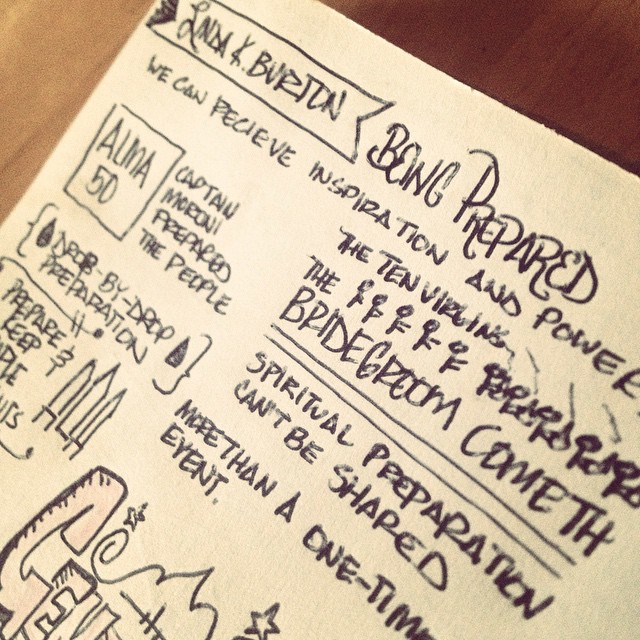 LINDA K. BURTON
BEING PREPARED
WE CAN RECIEVE INSPIRATION AND POWER
ALMA
50
CAPTAIN
MORONI
PREPARED
THE PEOPLE
DROP-BY-DROP
PREPARATION
PREPARE &
KEEP
THE TEN VIRGINS
THE
BRIDEGROOM COMETH
SPIRITUAL PREPARATION
CAN'T BE SHARED
MORE THAN A ONE-TIME
EVENT.